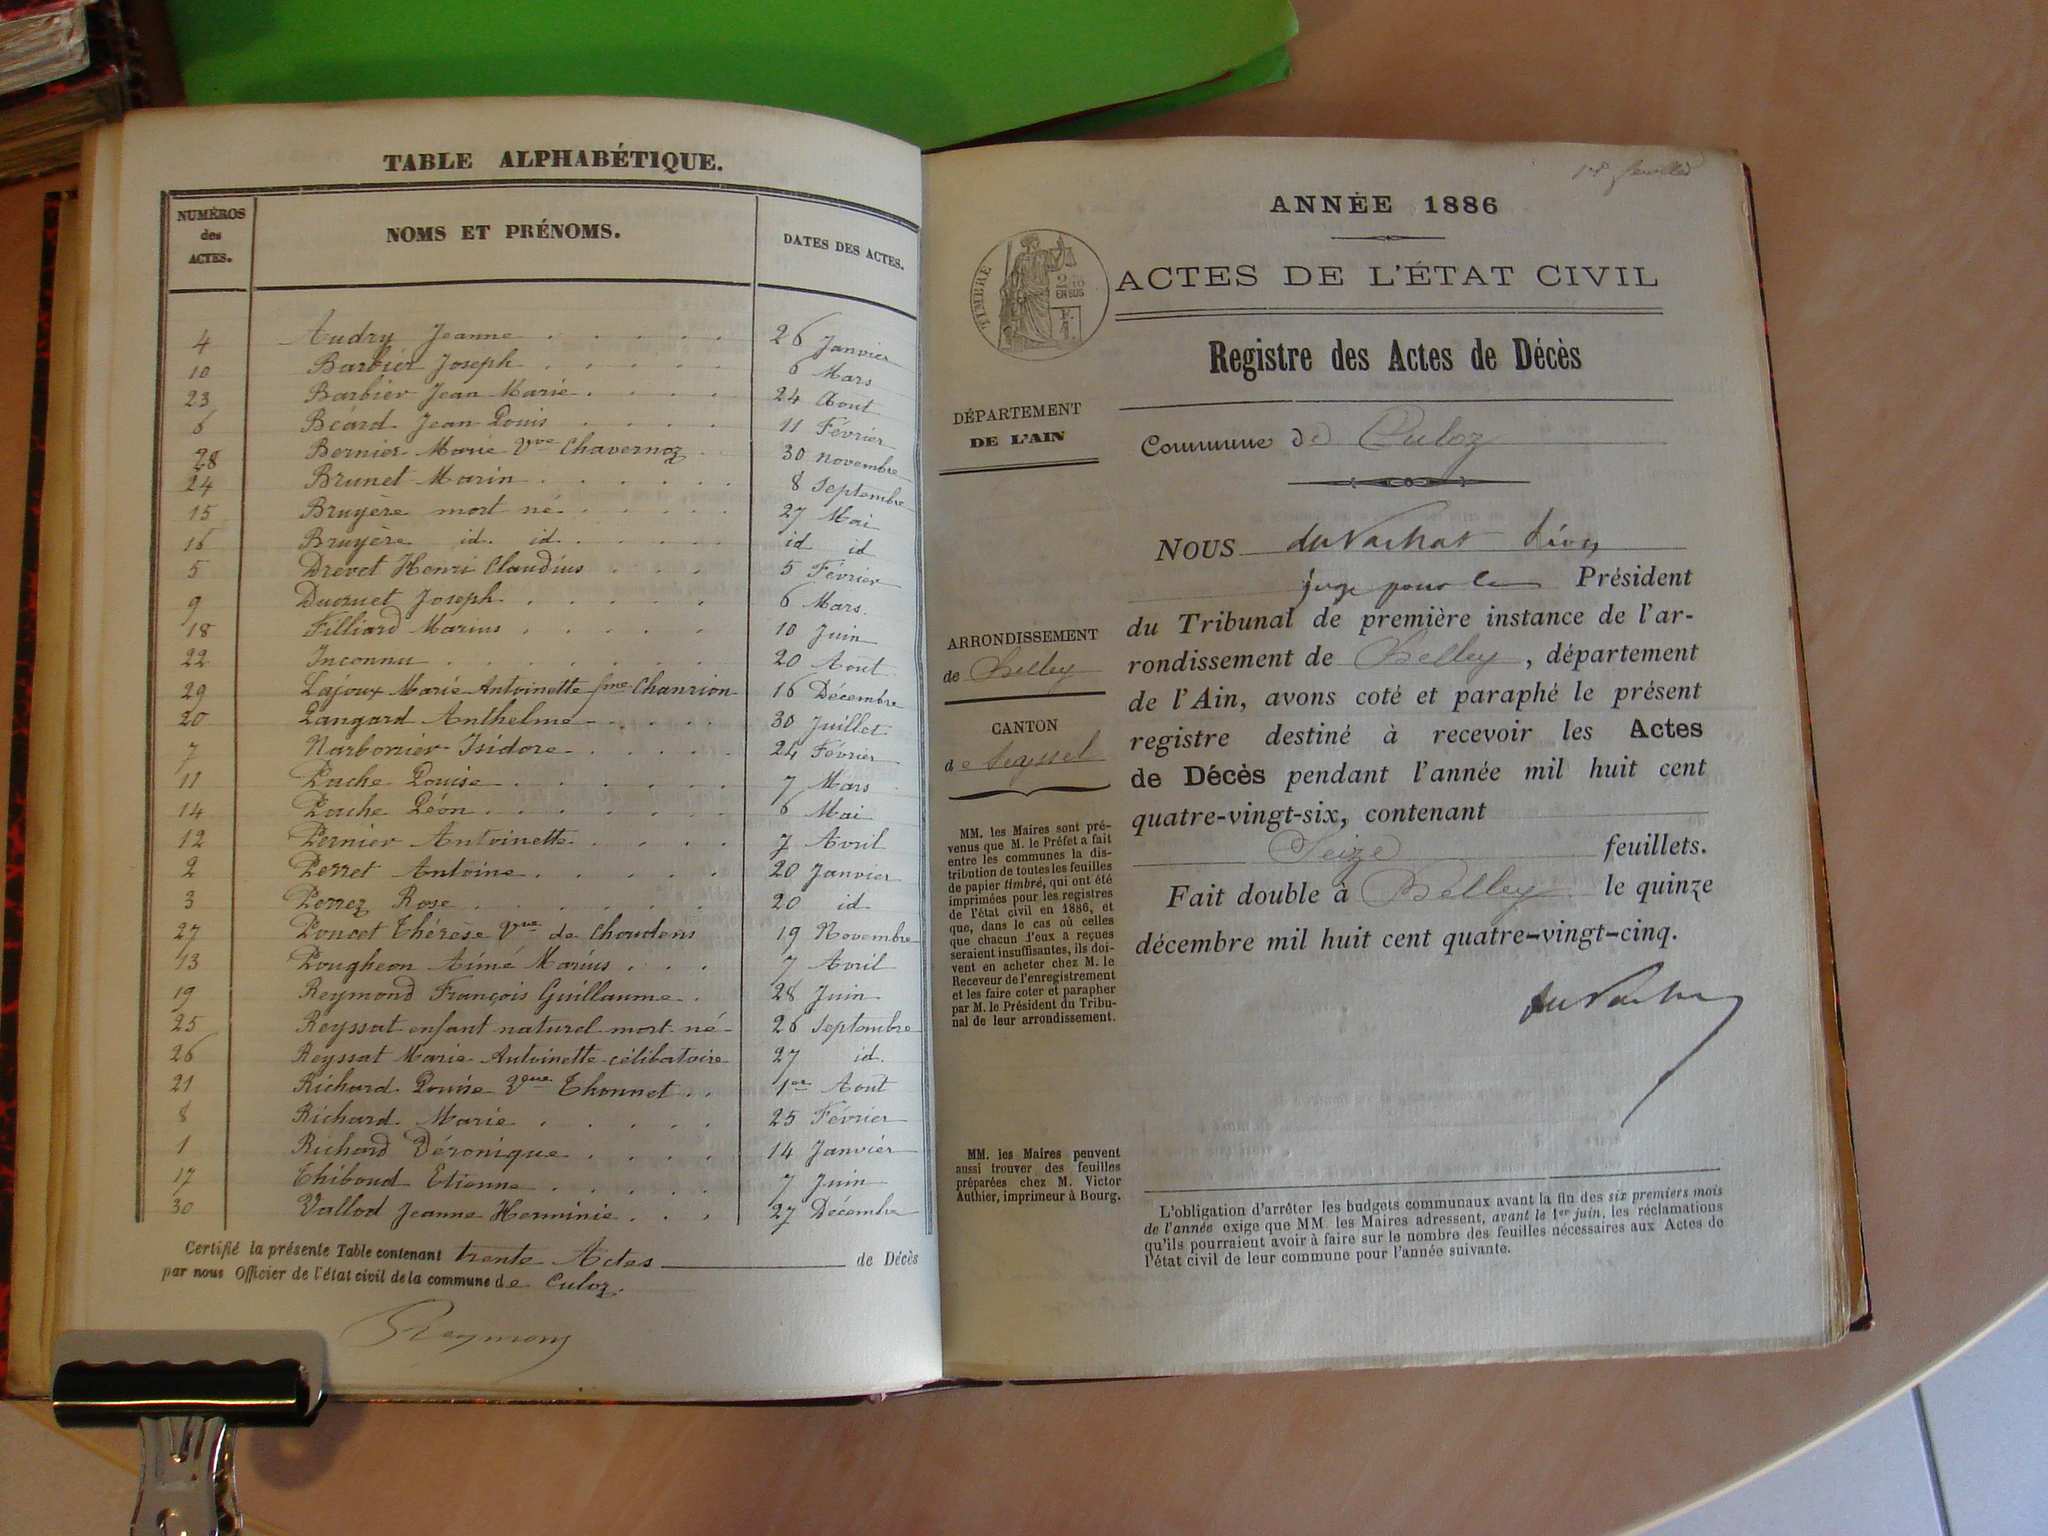 TABLE ALPHABÉTIQUE.
NUMÉROS des ACTES. NOMS ET PRÉNOMS. DATES DES ACTES.
4 Audry Jeanne 26 Janvier
10 Barbier Joseph 6 Mars
23 Barbier Jean Marie 24 Aout
6 Béard Jean Louis 11 Février
28 Bernier Marie Vve Chavernoz 30 Novembre
24 Brunet Marin 8 Septembre
15 Bruyère mort né 27 Mai
16 Bruyère id. id. id id
5 Drevet Henri Claudius 5 Février
9 Ducruet Joseph 6 Mars.
18 Filliard Marius 10 Juin
22 Inconnu 20 Août
29 Lajoux Marie Antoinette fme Chanrion 16 Décembre
20 Langard Anthelme 30 Juillet
7 Narbonier Isidore 24 Février
11 Pache Louise 7 Mars
14 Pache Léon 6 Mai
12 Pernier Antoinette 7 Avril
2 Perret Antoine 20 Janvier
3 Perrez Rose 20 id.
27 Poncet Thérèse Vve de Choudens 19 Novembre
13 Pougheon Aimé Marius 7 Avril
19 Reymond François Guillaume 28 Juin
25 Reyssat enfant naturel mort né 26 Septembre
26 Reyssat Marie Antoinette célibataire 27 id.
21 Richard Louise Vve Thonnet 1er Août
8 Richard Marie 25 Février
1 Richard Véronique 14 Janvier
17 Thiboud Etienne 7 Juin
30 Vallod Jeanne Herminie 27 Décembre
Certifié la présente Table contenant trente Actes de Décès
par nous Officier de l'état civil de la commune de Culoz.
Reymond
ANNÉE 1886
TIMBRE
EN SUS
ACTES DE L'ÉTAT CIVIL
Registre des Actes de Décès
DÉPARTEMENT
DE L'AIN
Commune de Culoz
NOUS du Vachat Léon
juge pour le Président
du Tribunal de première instance de l'ar-
rondissement de Belley, département
de l'Ain, avons coté et paraphé le présent
registre destiné à recevoir les Actes
de Décès pendant l'année mil huit cent
quatre-vingt-six, contenant
Seize feuillets.
Fait double à Belley le quinze
décembre mil huit cent quatre-vingt-cinq.
du Vachat
ARRONDISSEMENT
de Belley
CANTON
de Seyssel
MM. les Maires sont pré-
venus que M. le Préfet a fait
entre les communes la dis-
tribution de toutes les feuilles
de papier timbré, qui ont été
imprimées pour les registres
de l'état civil en 1886, et
que, dans le cas où celles
que chacun d'eux a reçues
seraient insuffisantes, ils doi-
vent en acheter chez M. le
Receveur de l'enregistrement
et les faire coter et parapher
par M. le Président du Tribu-
nal de leur arrondissement.
MM. les Maires peuvent
aussi trouver des feuilles
préparées chez M. Victor
Authier, imprimeur à Bourg.
L'obligation d'arrêter les budgets communaux avant la fin des six premiers mois
de l'année exige que MM. les Maires adressent, avant le 1er juin, les réclamations
qu'ils pourraient avoir à faire sur le nombre des feuilles nécessaires aux Actes de
l'état civil de leur commune pour l'année suivante.